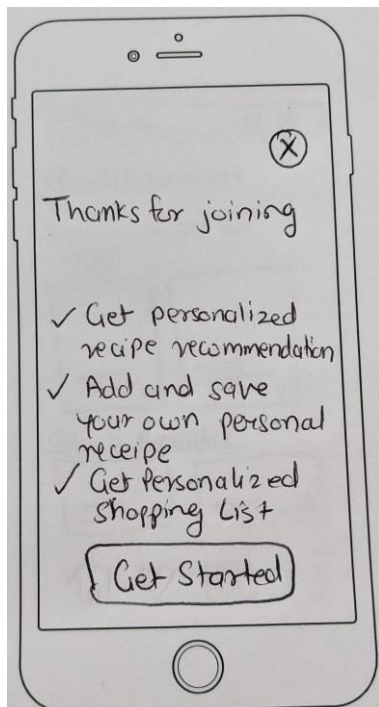 X
Thanks for joining
✓ Get personalized
recipe recommendation
✓ Add and save
your own personal
receipe
✓ Get Personalized
Shopping List
Get Started